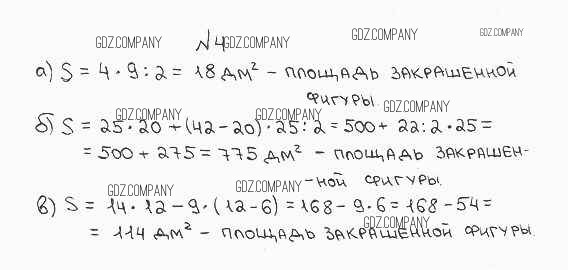 GDZ.COMPANY №4 GDZ.COMPANY GDZ.COMPANY GDZ.COMPANY
а) S = 4 · 9 : 2 = 18 дм² – площадь закрашенной
фигуры. GDZ.COMPANY
GDZ.COMPANY GDZ.COMPANY
б) S = 25 · 20 + (42 – 20) · 25 : 2 = 500 + 22 : 2 · 25 =
= 500 + 275 = 775 дм² – площадь закрашен-
GDZ.COMPANY GDZ.COMPANY
–ной фигуры.
в) S = 14 · 12 – 9 · (12 – 6) = 168 – 9 · 6 = 168 – 54 =
GDZ.COMPANY
= 114 дм² – площадь закрашенной фигуры.